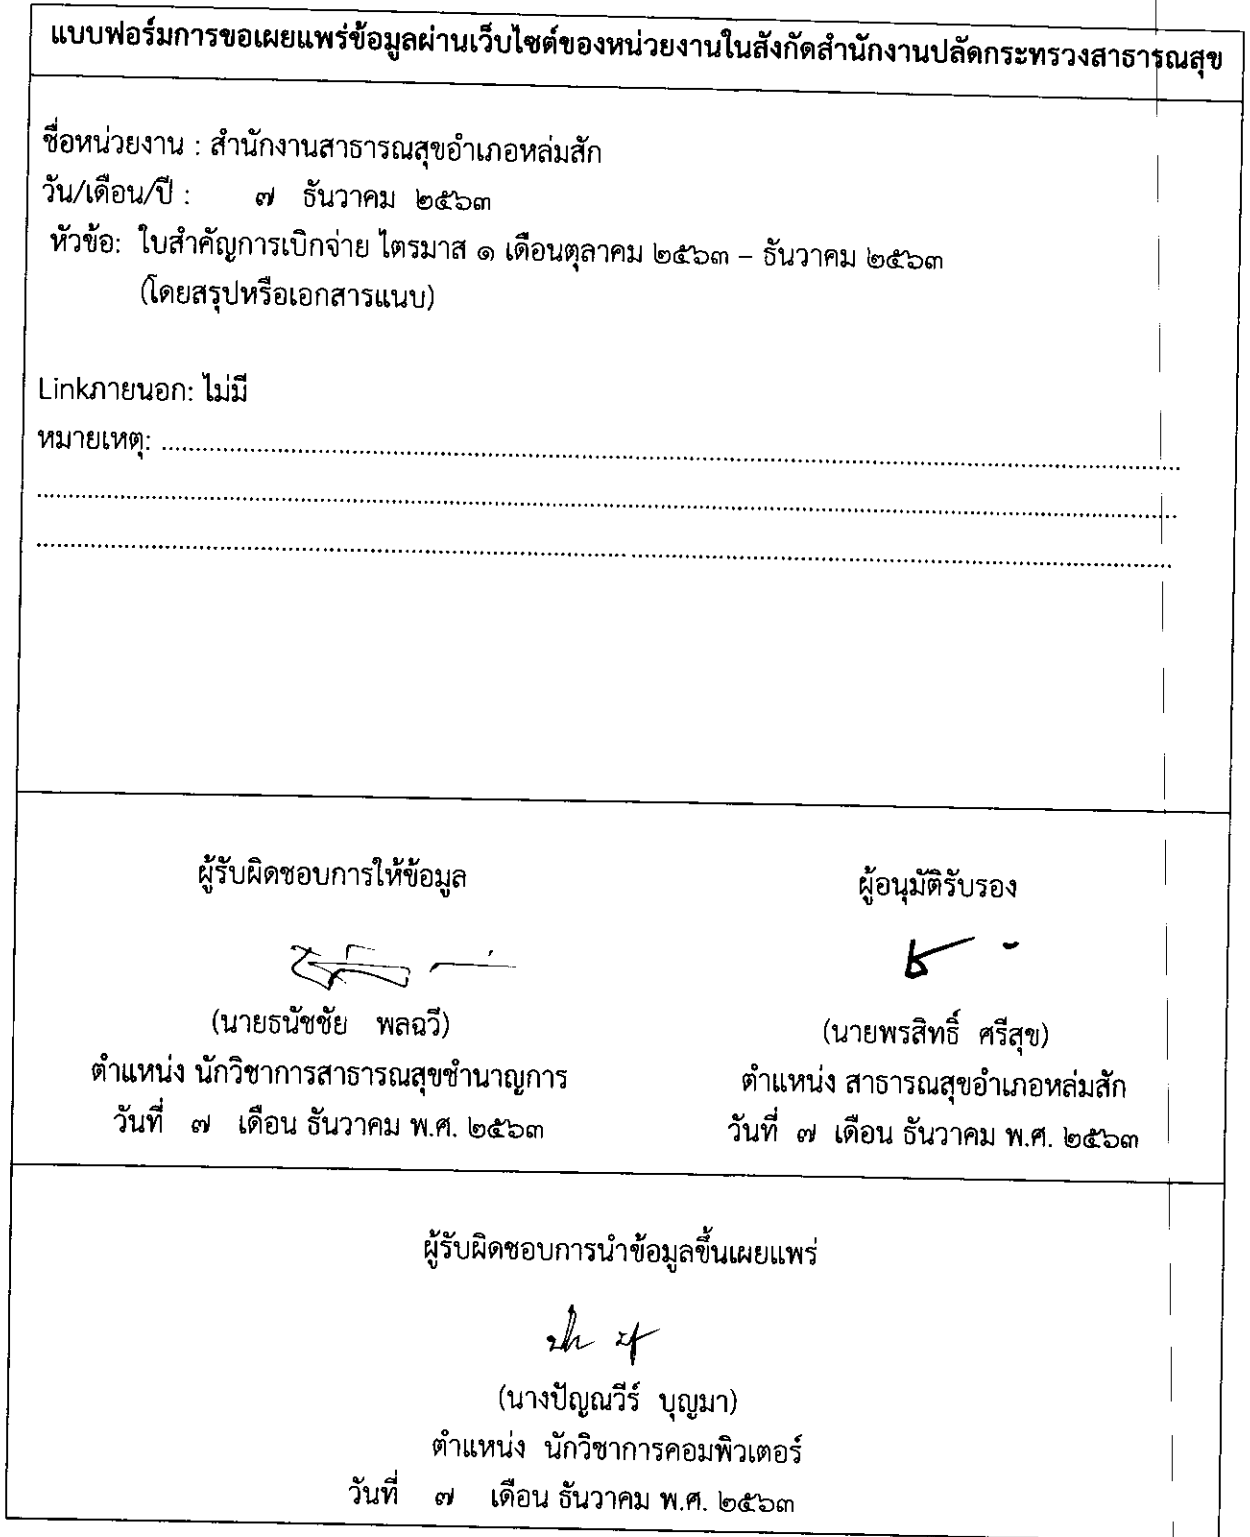 แบบฟอร์มการขอเผยแพร่ข้อมูลผ่านเว็บไซต์ของหน่วยงานในสังกัดสำนักงานปลัดกระทรวงสาธารณสุข
ชื่อหน่วยงาน : สำนักงานสาธารณสุขอำเภอหล่มสัก
วัน/เดือน/ปี : ๗ ธันวาคม ๒๕๖๓
หัวข้อ: ใบสำคัญการเบิกจ่าย ไตรมาส ๑ เดือนตุลาคม ๒๕๖๓ – ธันวาคม ๒๕๖๓
(โดยสรุปหรือเอกสารแนบ)
Linkภายนอก: ไม่มี
หมายเหตุ: ........................................................................
........................................................................
........................................................................
ผู้รับผิดชอบการให้ข้อมูล
(นายธนัชชัย พลฉวี)
ตำแหน่ง นักวิชาการสาธารณสุขชำนาญการ
วันที่ ๗ เดือน ธันวาคม พ.ศ. ๒๕๖๓
ผู้อนุมัติรับรอง
(นายพรสิทธิ์ ศรีสุข)
ตำแหน่ง สาธารณสุขอำเภอหล่มสัก
วันที่ ๗ เดือน ธันวาคม พ.ศ. ๒๕๖๓
ผู้รับผิดชอบการนำข้อมูลขึ้นเผยแพร่
(นางปัญณวีร์ บุญมา)
ตำแหน่ง นักวิชาการคอมพิวเตอร์
วันที่ ๗ เดือน ธันวาคม พ.ศ. ๒๕๖๓